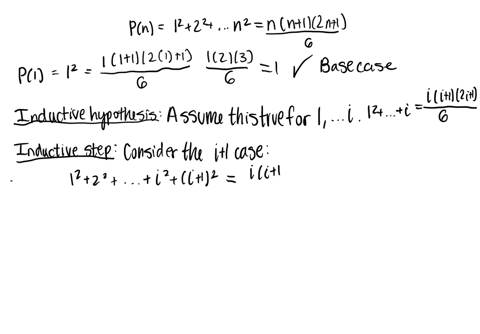 P(n) = 1²+2²+ ... n² = n(n+1)(2n+1)/6
P(1) = 1² = 1(1+1)(2(1)+1)/6 1(2)(3)/6 = 1 ✓ Base case
Inductive hypothesis: Assume this true for 1, ... i. 1²+...+i = i(i+1)(2i+1)/6
Inductive step: Consider the i+1 case:
1²+2²+ ... + i² + (i+1)² = i(i+1